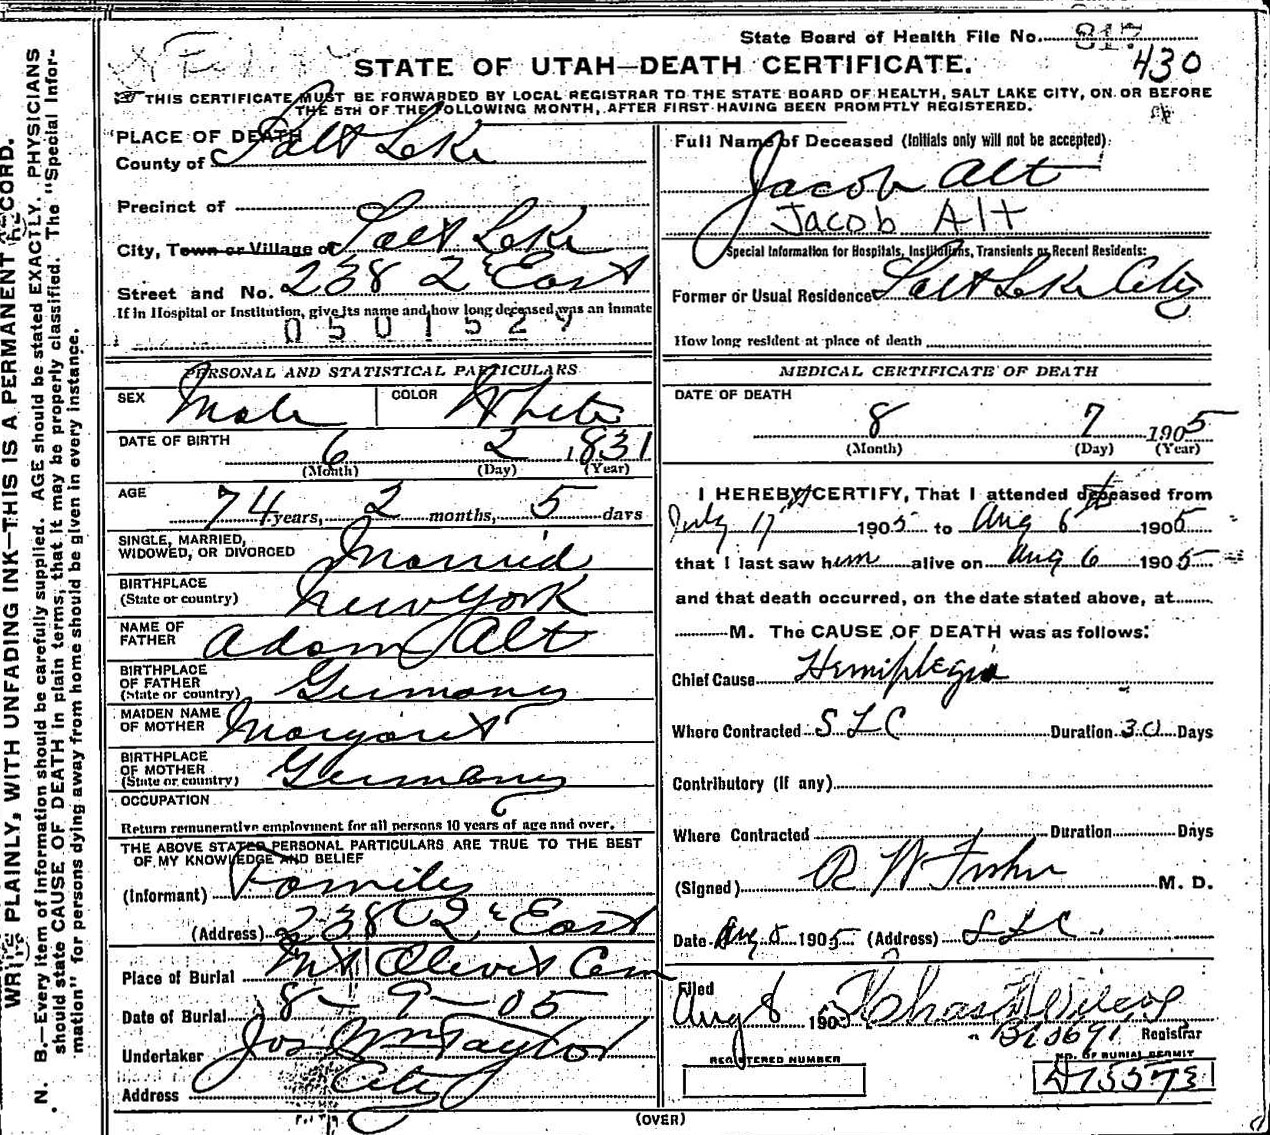 State Board of Health File No. 817
430
STATE OF UTAH—DEATH CERTIFICATE.
THIS CERTIFICATE MUST BE FORWARDED BY LOCAL REGISTRAR TO THE STATE BOARD OF HEALTH, SALT LAKE CITY, ON OR BEFORE
THE 5TH OF THE FOLLOWING MONTH, AFTER FIRST HAVING BEEN PROMPTLY REGISTERED.
WRITE PLAINLY, WITH UNFADING INK—THIS IS A PERMANENT RECORD.
N. B.—Every item of information should be carefully supplied. AGE should be stated EXACTLY. PHYSICIANS
should state CAUSE OF DEATH in plain terms, that it may be properly classified. The "Special Infor-
mation" for persons dying away from home should be given in every instance.
PLACE OF DEATH
County of Salt Lake
Precinct of
City, Town or Village of Salt Lake
Street and No. 238 2 East
If in Hospital or Institution, give its name and how long deceased was an inmate
0501527
PERSONAL AND STATISTICAL PARTICULARS
SEX Male COLOR White
DATE OF BIRTH 6 2 1831
(Month) (Day) (Year)
AGE 74 years, 2 months, 5 days
SINGLE, MARRIED,
WIDOWED, OR DIVORCED Married
BIRTHPLACE
(State or country) New York
NAME OF
FATHER Adam Alt
BIRTHPLACE
OF FATHER
(State or country) Germany
MAIDEN NAME
OF MOTHER Margaret
BIRTHPLACE
OF MOTHER
(State or country) Germany
OCCUPATION
Return remunerative employment for all persons 10 years of age and over.
THE ABOVE STATED PERSONAL PARTICULARS ARE TRUE TO THE BEST
OF MY KNOWLEDGE AND BELIEF
(Informant) Family
(Address) 238 2 East
Place of Burial Mt Olivet Cem
Date of Burial 8-9-05
Undertaker Jos Wm Taylor
Address City
Full Name of Deceased (Initials only will not be accepted):
Jacob Alt
Jacob Alt
Special Information for Hospitals, Institutions, Transients or Recent Residents:
Former or Usual Residence Salt Lake City
How long resident at place of death
MEDICAL CERTIFICATE OF DEATH
DATE OF DEATH
8 7 1905
(Month) (Day) (Year)
I HEREBY CERTIFY, That I attended deceased from
July 17th 1905 to Aug 6th 1905
that I last saw him alive on Aug 6 1905
and that death occurred, on the date stated above, at
M. The CAUSE OF DEATH was as follows:
Chief Cause Hemiplegia
Where Contracted S L C Duration 30 Days
Contributory (if any)
Where Contracted Duration Days
(Signed) R W Fisher M. D.
Date Aug 8 1905 (Address) S L C
Filed
Aug 8 1905 Chas Wilcox
B20671 Registrar
REGISTERED NUMBER
NO. OF BURIAL PERMIT
D15573
(OVER)